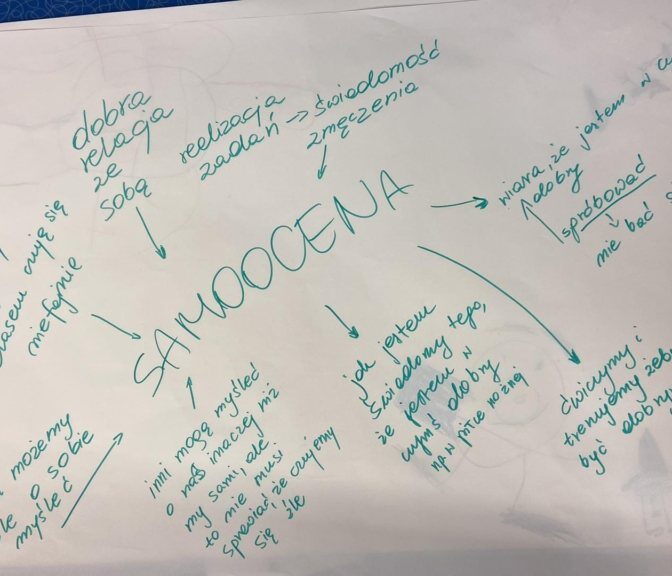 dobra
relacja
ze
sobą
realizacja
zadań → świadomość
zmęczenia
SAMOOCENA
wiara, że jestem w
dobry
spróbować
nie być
czuję się
niefajnie
możemy
o sobie
myśleć
inni mogą myśleć
o nas inaczej niż
my sami, ale
to nie musi
sprawiać, że czujemy
się źle
jak jestem
świadomy tego,
że jestem w
czymś dobry
np w piłce nożnej
ćwiczymy i
trenujemy żeby
być dobrym